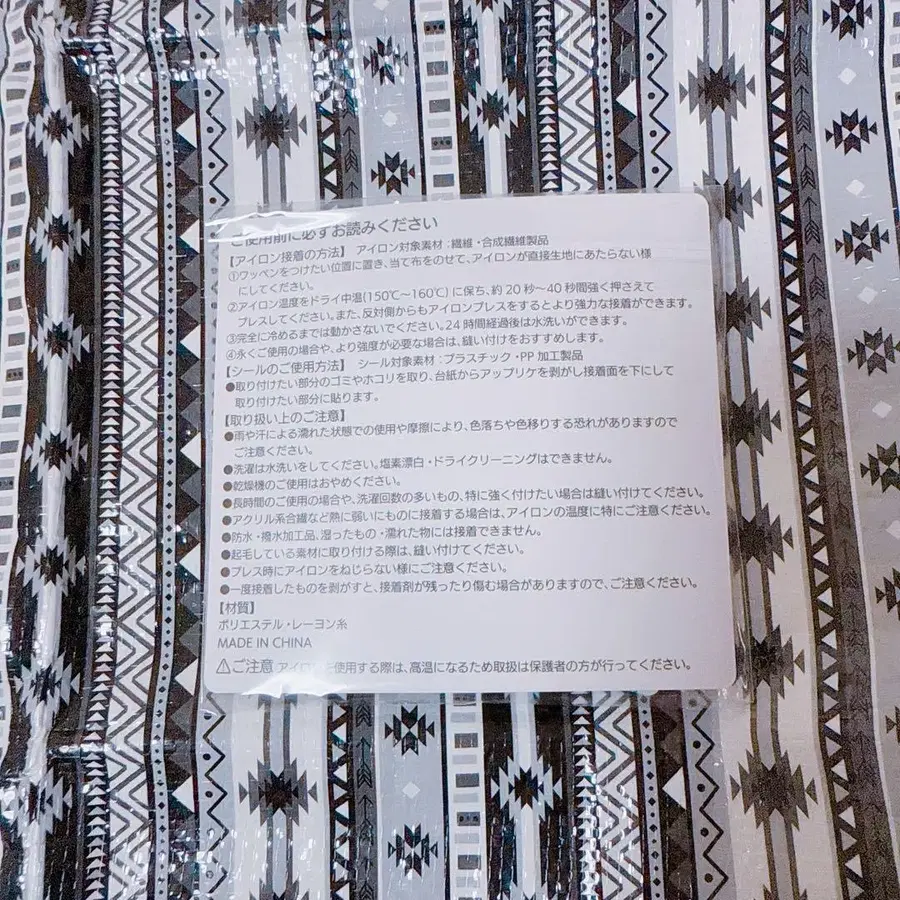 ご使用前に必ずお読みください
【アイロン接着の方法】 アイロン対象素材：繊維・合成繊維製品
①ワッペンをつけたい位置に置き、当て布をのせて、アイロンが直接生地にあたらない様
にしてください。
②アイロン温度をドライ中温(150℃～160℃) に保ち、約 20 秒～40 秒間強く押さえて
プレスしてください。また、反対側からもアイロンプレスをするとより強力な接着ができます。
③完全に冷めるまでは動かさないでください。24 時間経過後は水洗いができます。
④永くご使用の場合や、より強度が必要な場合は、縫い付けをおすすめします。
【シールのご使用方法】 シール対象素材：プラスチック・PP 加工製品
●取り付けたい部分のゴミやホコリを取り、台紙からアップリケを剥がし接着面を下にして
取り付けたい部分に貼ります。
【取り扱い上のご注意】
●雨や汗による濡れた状態での使用や摩擦により、色落ちや色移りする恐れがありますので
ご注意ください。
●洗濯は水洗いをしてください。塩素漂白・ドライクリーニングはできません。
●乾燥機のご使用はおやめください。
●長時間のご使用の場合や、洗濯回数の多いもの、特に強く付けたい場合は縫い付けてください。
●アクリル系合繊など熱に弱いにものに接着する場合は、アイロンの温度に特にご注意ください。
●防水・撥水加工品、湿ったもの・濡れた物には接着できません。
●起毛している素材に取り付ける際は、縫い付けてください。
●プレス時にアイロンをねじらない様にご注意ください。
●一度接着したものを剥がすと、接着剤が残ったり傷む場合がありますので、ご注意ください。
【材質】
ポリエステル・レーヨン糸
MADE IN CHINA
⚠ご注意 アイロンを使用する際は、高温になるため取扱は保護者の方が行ってください。